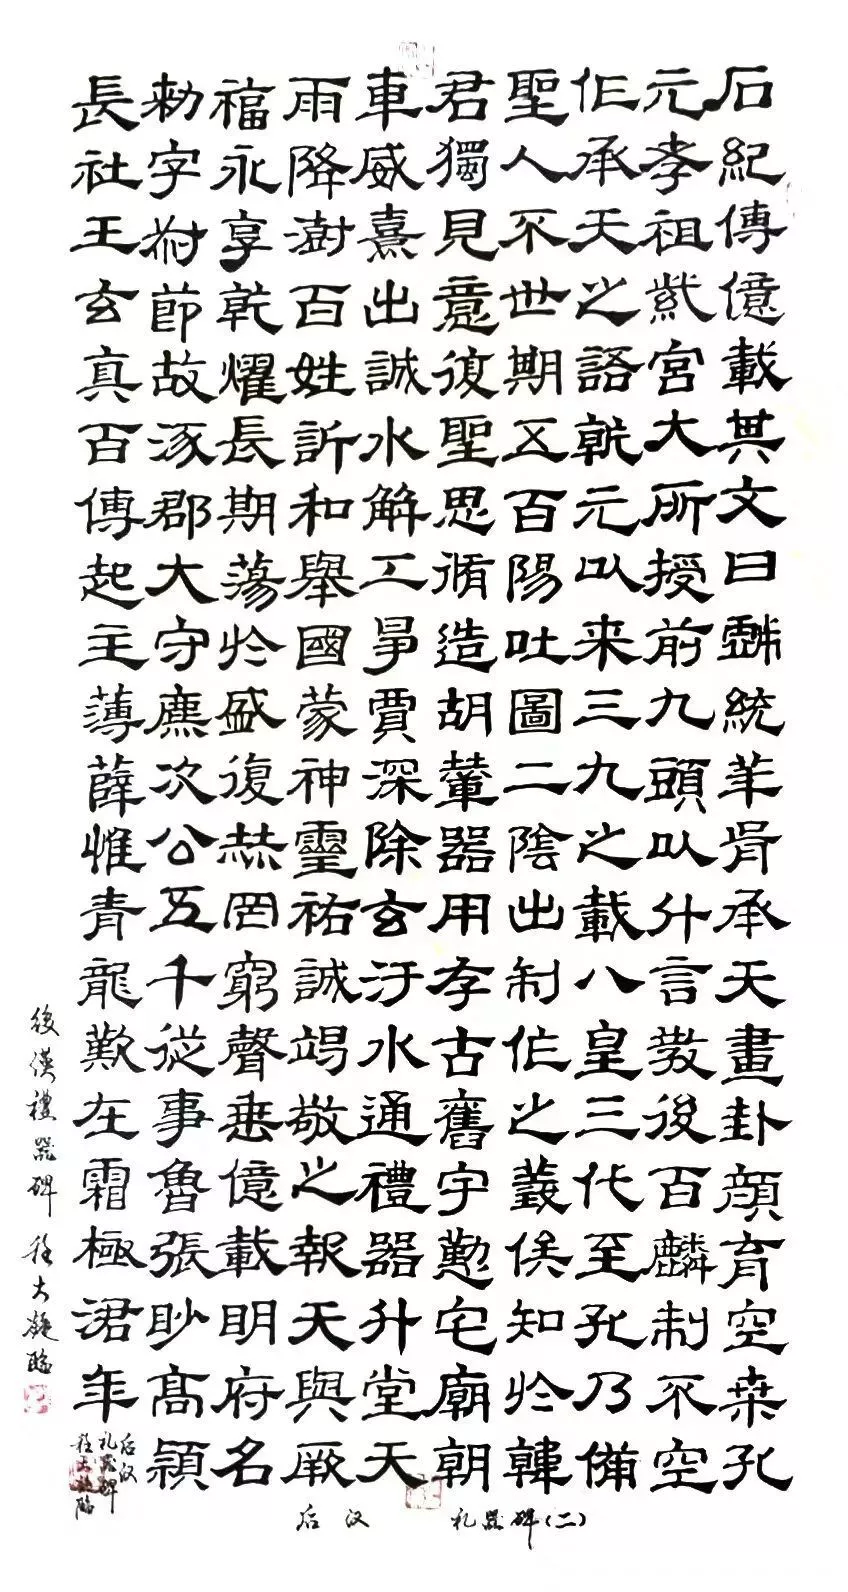 石紀傳億載其文曰戲統華胥承天畫卦顏育空桑孔
元孝祖紫宮大所授前九頭以升言教後百麟制不空
作承天之語乾元以来三九之載八皇三代至孔乃備
聖人不世期五百陽吐圖二陰出制作之義俟知於韓
君獨見意復聖思循造胡輦器用存古舊宇慇宅廟朝
車威熹出誠水解工爭賈深除玄汙水通禮器升堂天
雨降澍百姓訢和舉國蒙神靈祐誠竭敬之報天與厥
福永享乾耀長期蕩於盛復赫罔窮聲垂億載明府名
勅字叔節故涿郡大守鹿次公五千從事魯張眇高潁
長社王玄真百傳起主薄薛惟青龍歎在霜極涒年
后汉
礼器碑
程大凝臨
後漢禮器碑 程大凝臨
后汉 礼器碑(二)